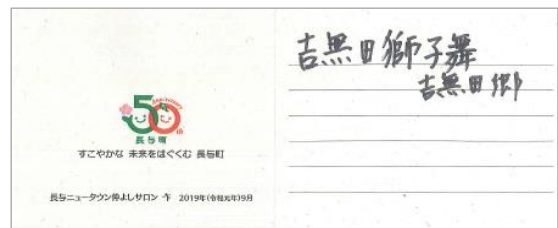 50
Anniversary
th
長与町
すこやかな 未来をはぐくむ 長与町
長与ニュータウン仲よしサロン 作 2019年(令和元年)9月
吉無田獅子舞
吉無田郷